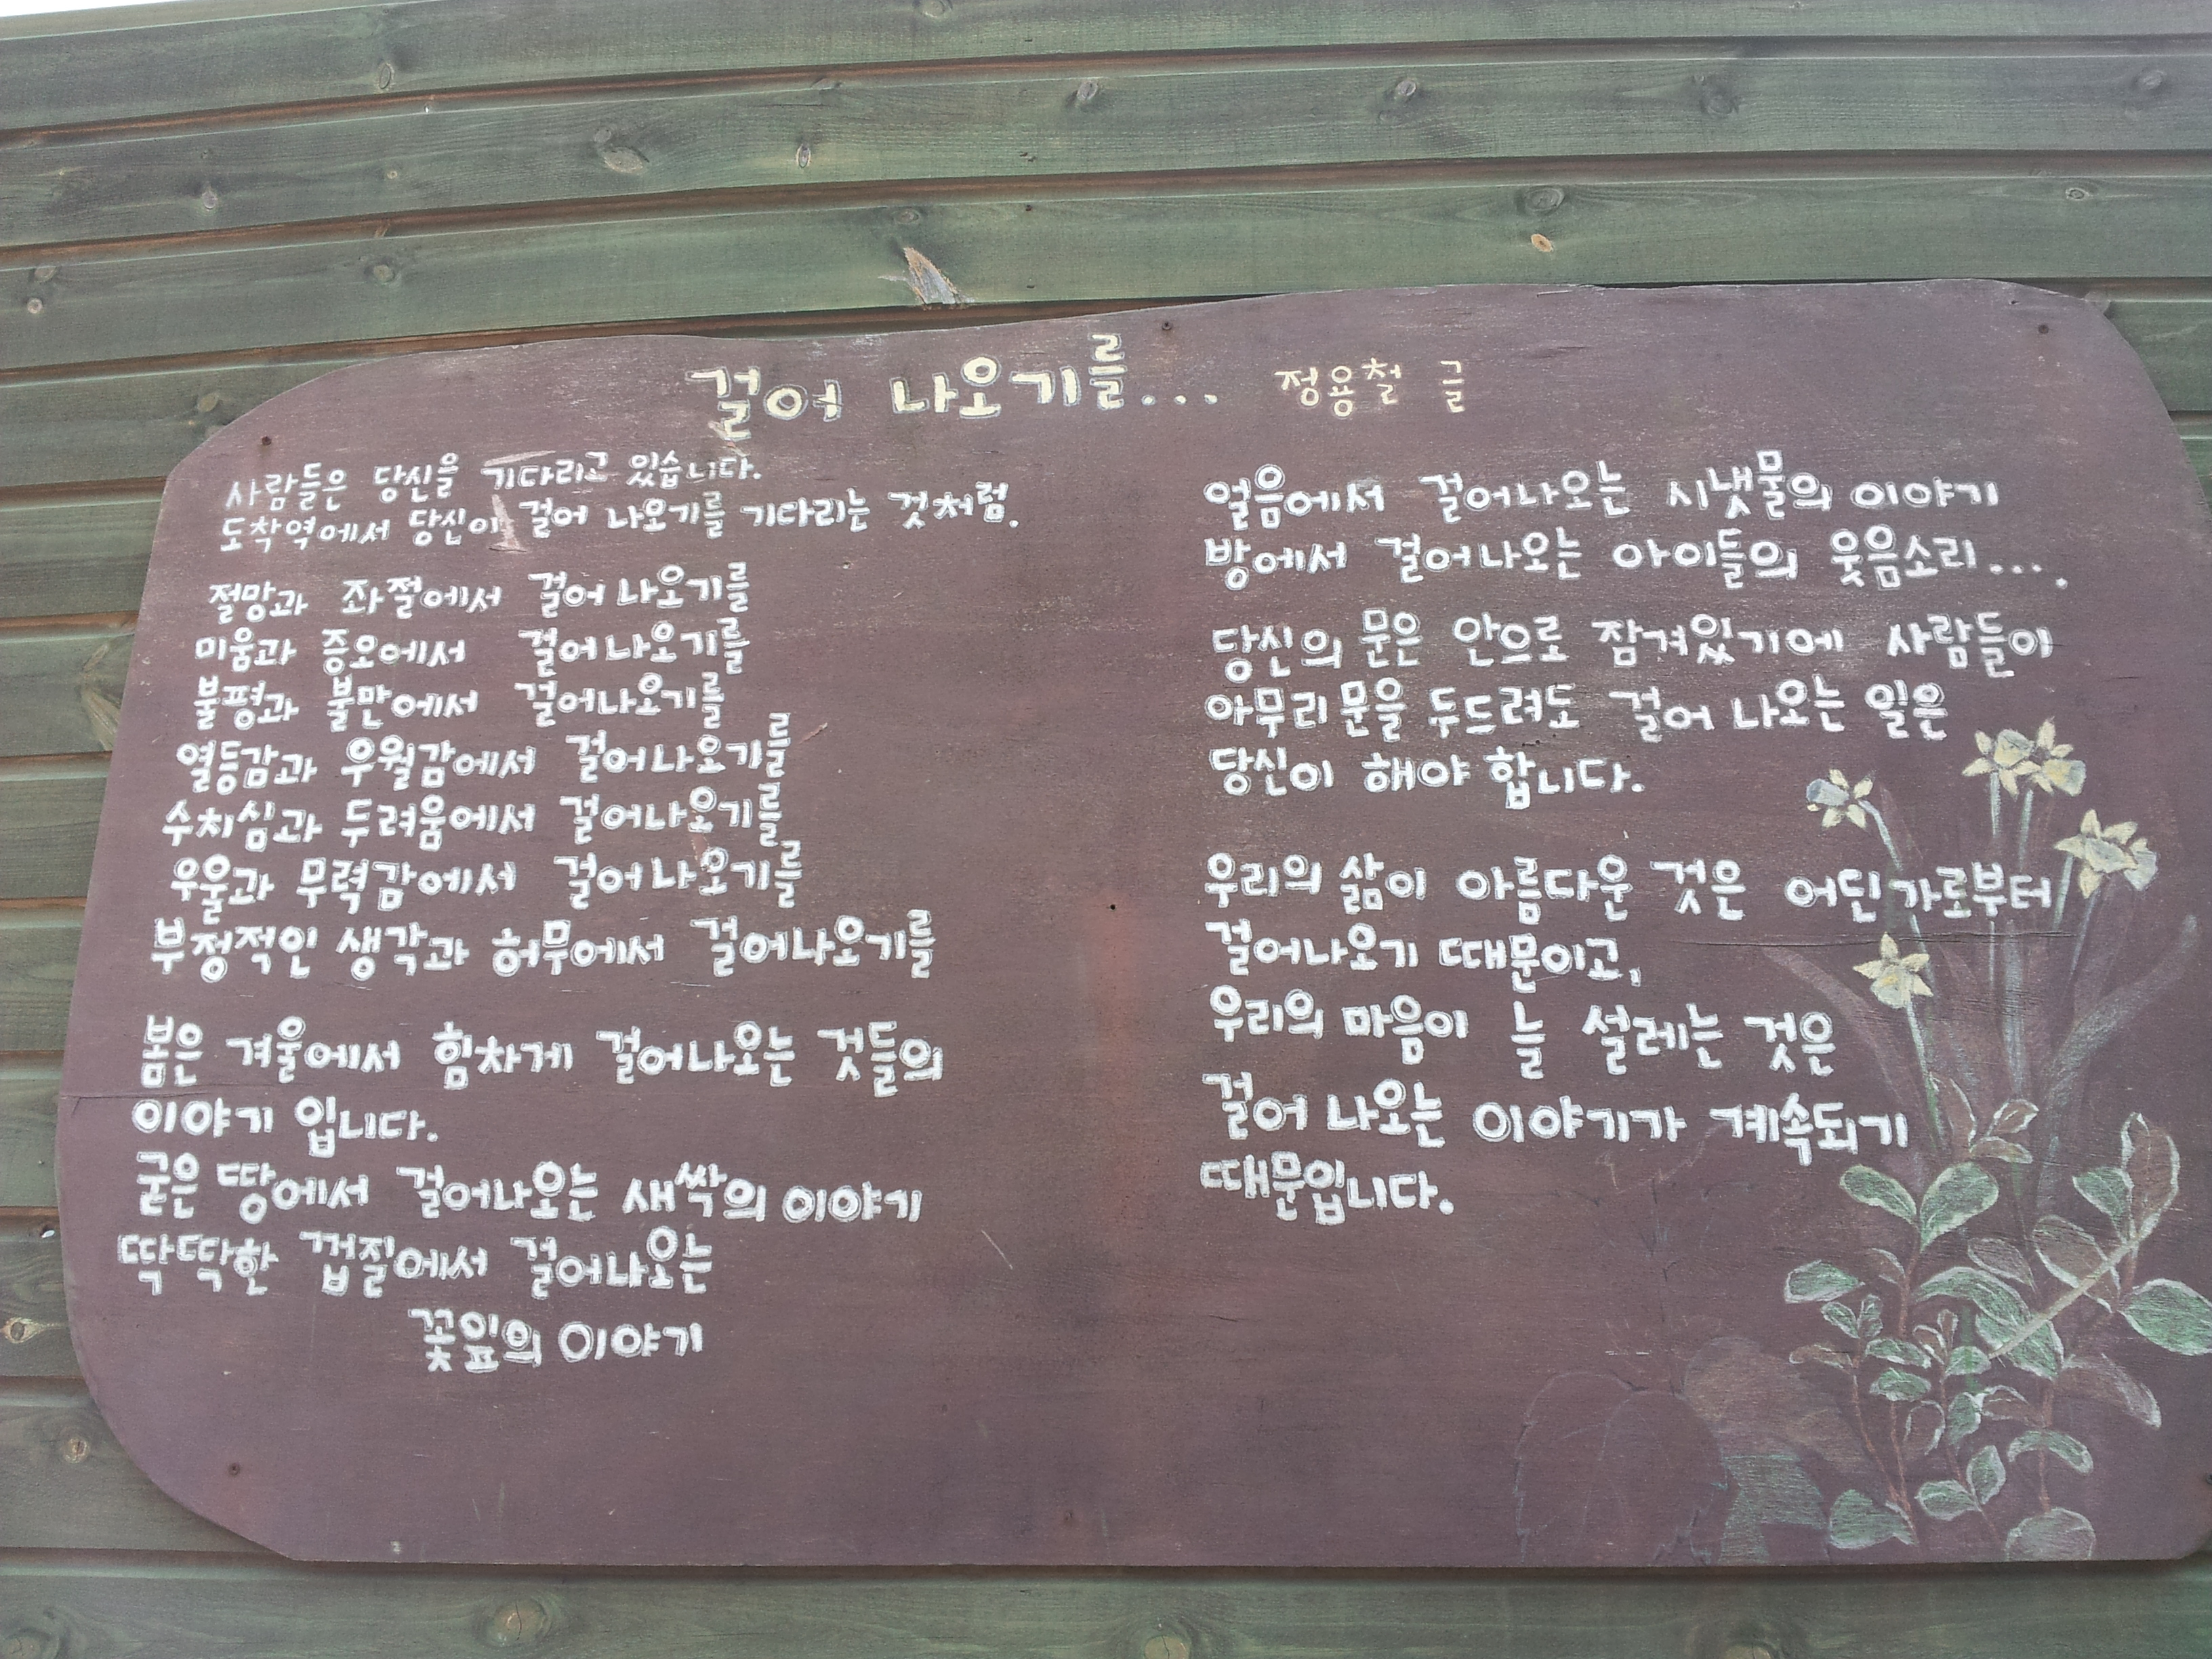 걸어 나오기를... 정용철 글
사람들은 당신을 기다리고 있습니다.
도착역에서 당신이 걸어 나오기를 기다리는 것처럼.
절망과 좌절에서 걸어 나오기를
미움과 증오에서 걸어 나오기를
불평과 불만에서 걸어나오기를
열등감과 우월감에서 걸어나오기를
수치심과 두려움에서 걸어나오기를
우울과 무력감에서 걸어나오기를
부정적인 생각과 허무에서 걸어나오기를
봄은 겨울에서 힘차게 걸어나오는 것들의
이야기 입니다.
굳은 땅에서 걸어나오는 새싹의 이야기
딱딱한 껍질에서 걸어나오는
꽃잎의 이야기
얼음에서 걸어나오는 시냇물의 이야기
방에서 걸어나오는 아이들의 웃음소리....
당신의 문은 안으로 잠겨있기에 사람들이
아무리 문을 두드려도 걸어 나오는 일은
당신이 해야 합니다.
우리의 삶이 아름다운 것은 어딘가로부터
걸어나오기 때문이고,
우리의 마음이 늘 설레는 것은
걸어 나오는 이야기가 계속되기
때문입니다.